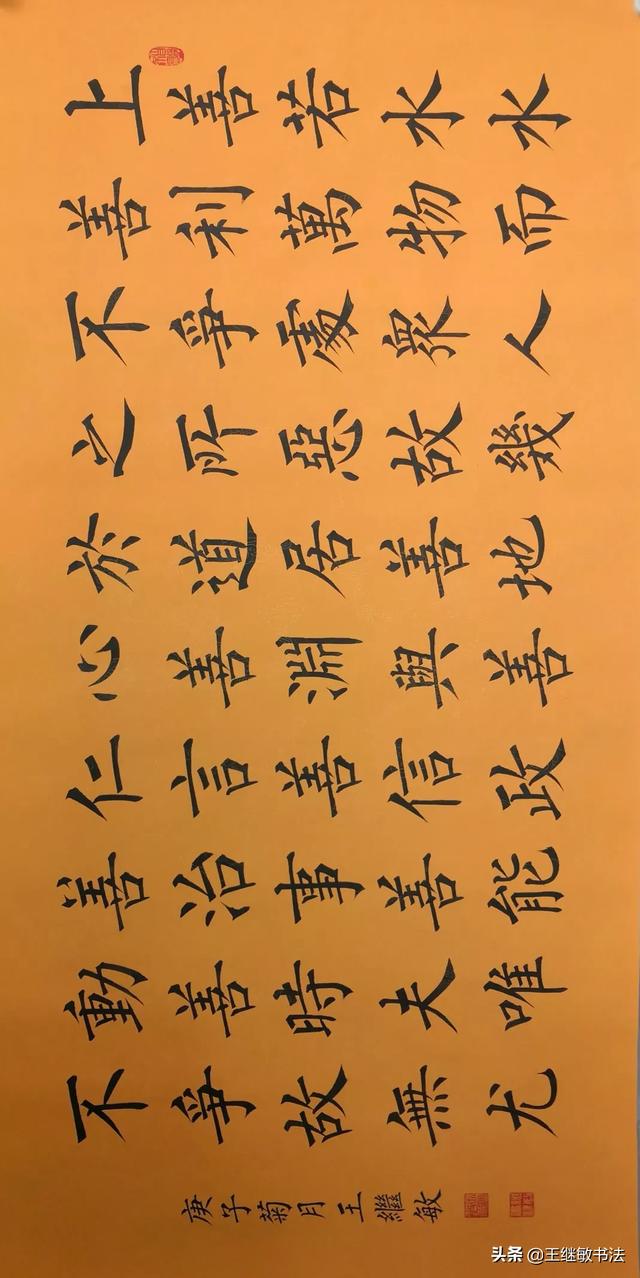 上善若水水
善利萬物而
不爭處眾人
之所惡故幾
於道居善地
心善淵與善
仁言善信政
善治事善能
動善時夫唯
不爭故無尤
庚子菊月王繼敏
头条 @王继敏书法